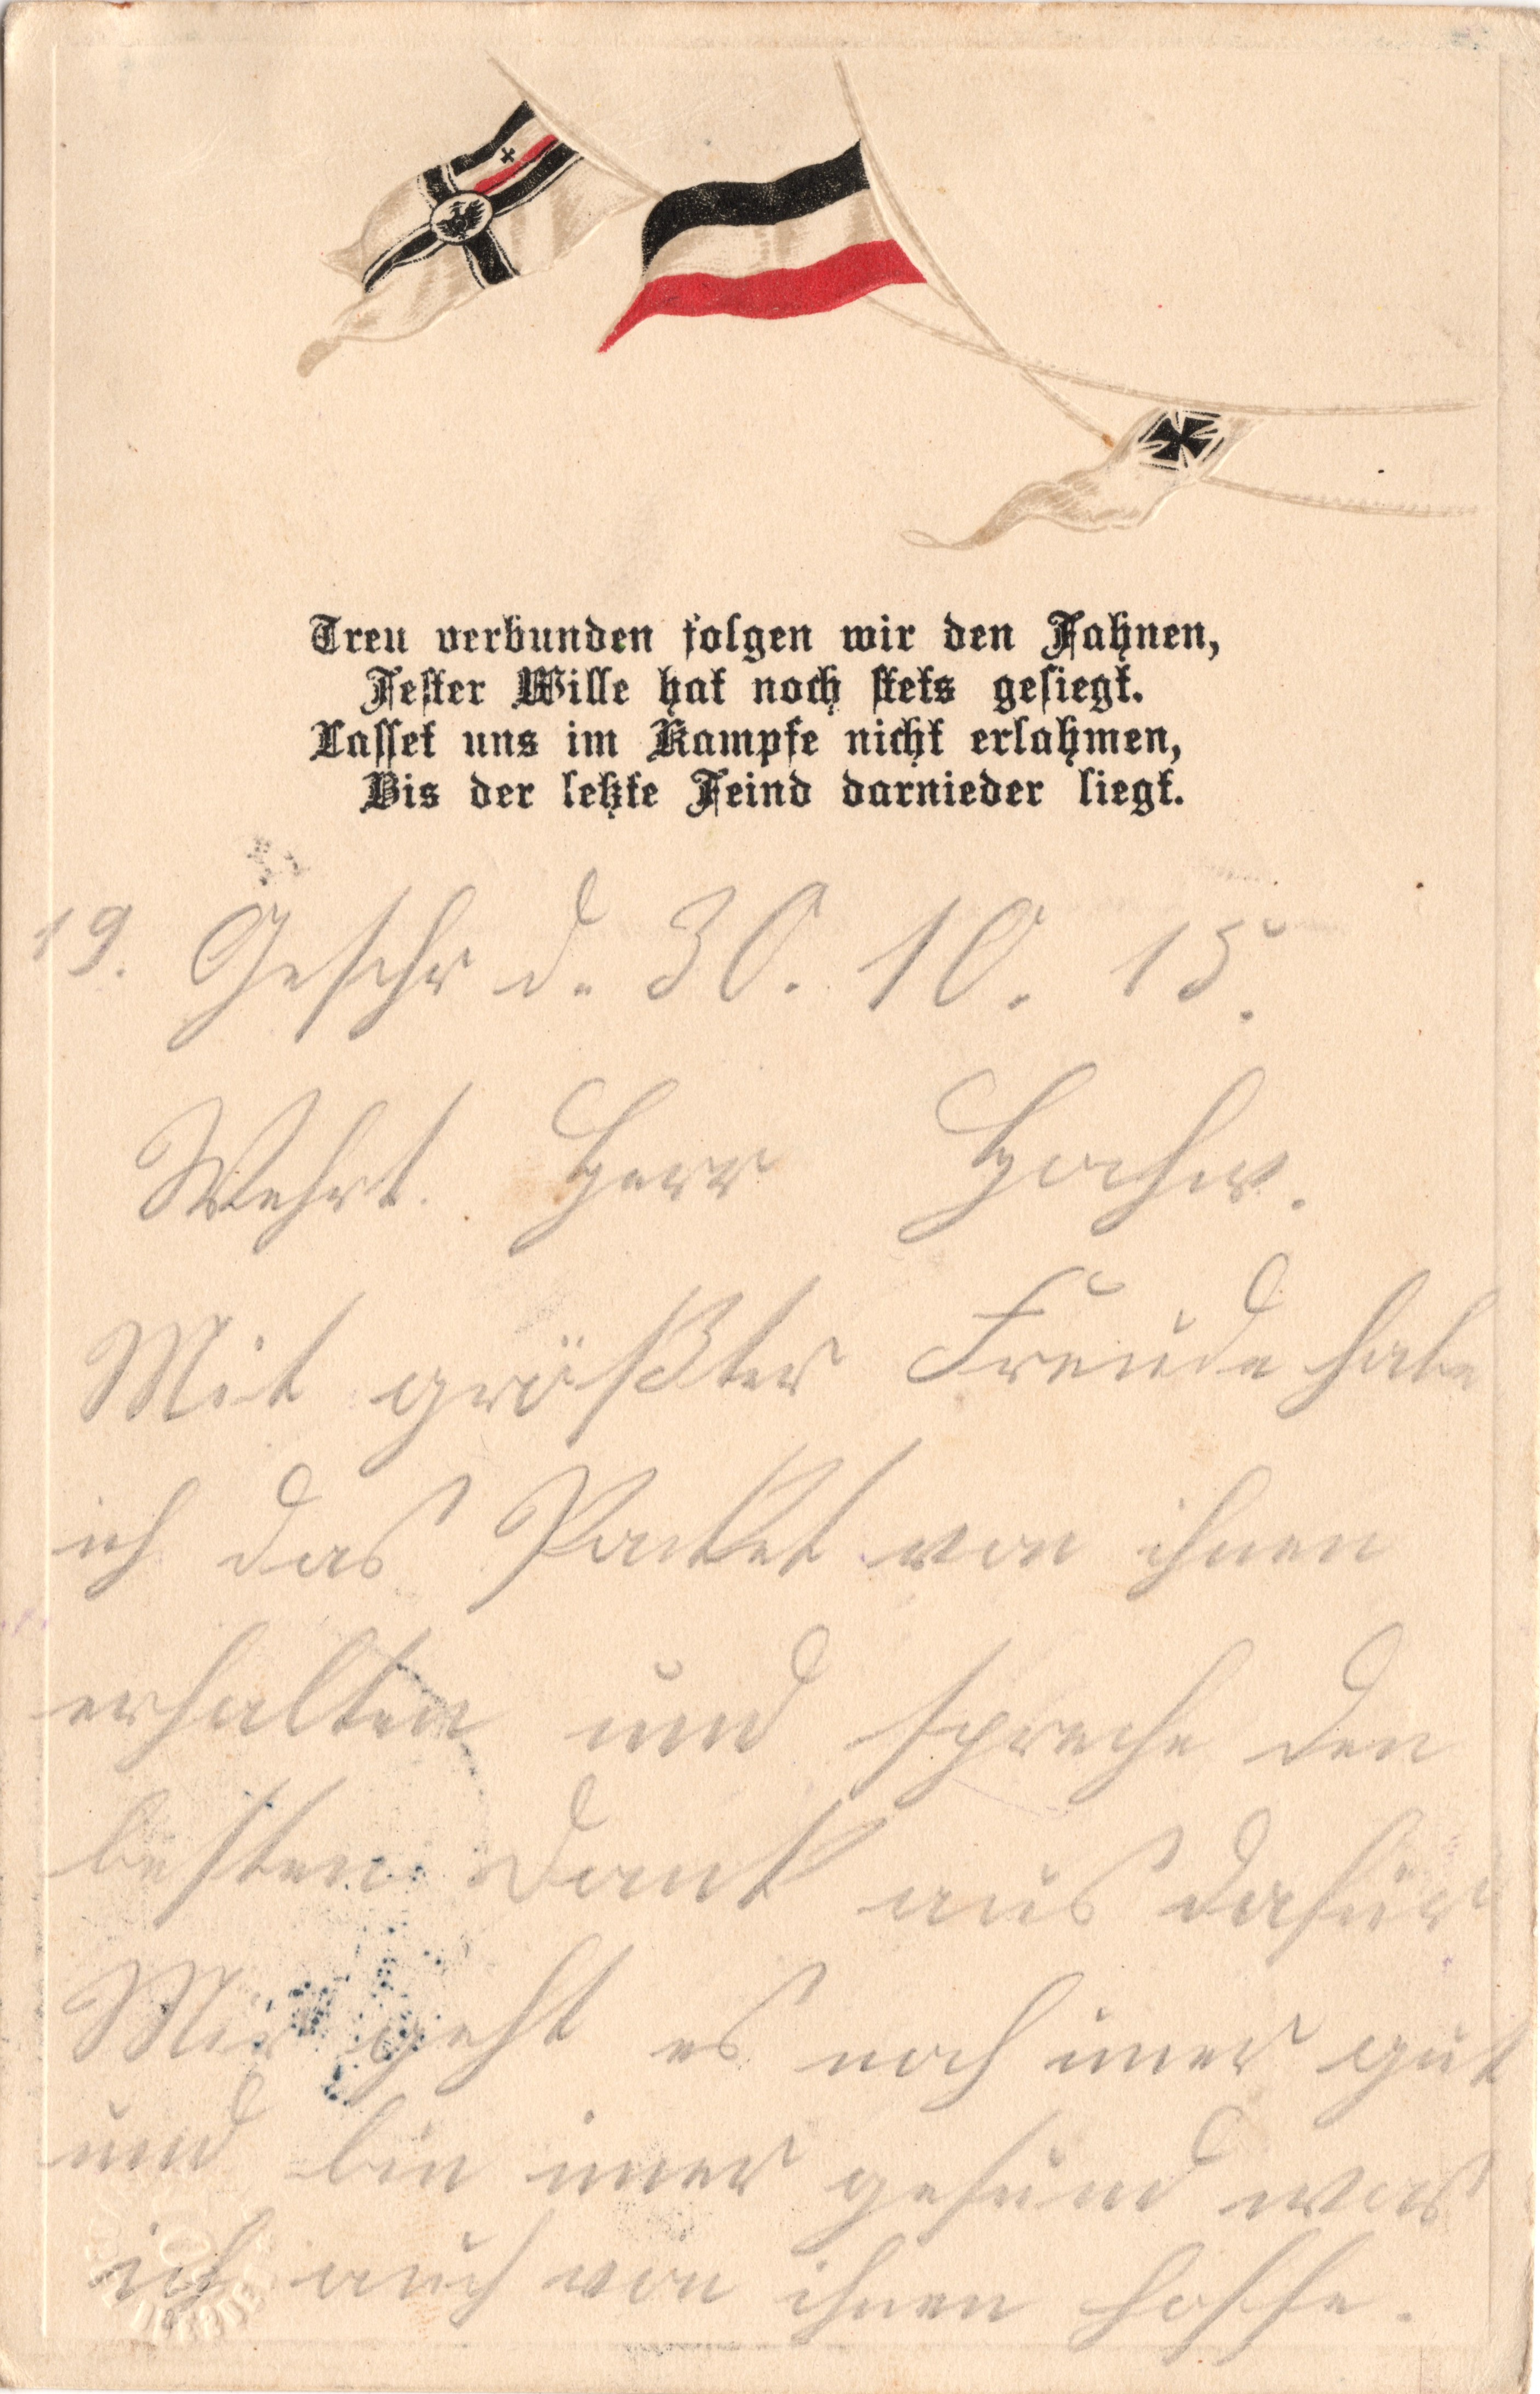 Treu verbunden folgen wir den Fahnen,
Fester Wille hat noch stets gesiegt.
Lasset uns im Kampfe nicht erlahmen,
Bis der letzte Feind darnieder liegt.
19. Geschr d. 30. 10. 15.
Wehrt. Herr Hochw.
Mit größter Freude habe
ich das Packet von ihnen
erhalten und spreche den
besten Dank aus dafür
Mir geht es noch imer gut
und bin imer gesund was
ich auch von ihnen hoffe.